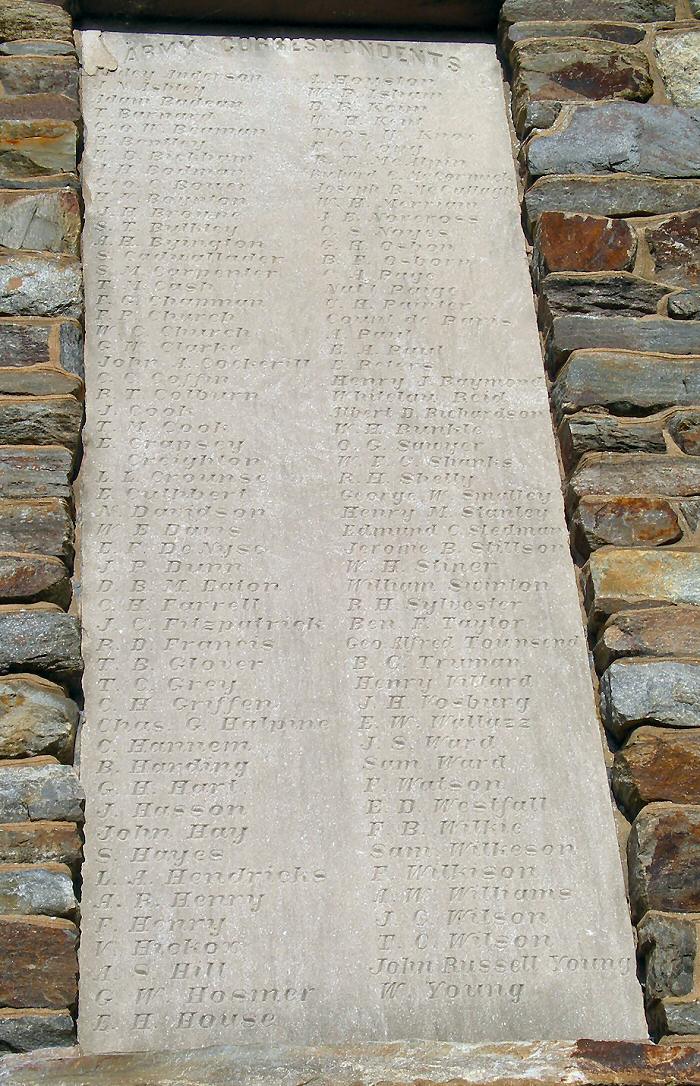 ARMY CORRESPONDENTS
Anderson
Ashley
Adam Badeau
T. Barnard
Geo. W. Beaman
H. Bentley
Bickham
Bodman
Geo. Bower
Boynton
J. H. Browne
S. T. Bulkley
A. H. Byington
S. Cadwallader
S. M. Carpenter
T. M. Cash
F. G. Chapman
F. P. Church
W. C. Church
G. W. Clarke
John A. Cockerill
C. C. Coffin
R. T. Colburn
J. Cook
T. M. Cook
E. Crapsey
Creighton
L. L. Crounse
E. Cuthbert
N. Davidson
W. E. Davis
E. F. DeNyse
J. P. Dunn
D. B. M. Eaton
C. H. Farrell
J. C. Fitzpatrick
R. D. Francis
T. B. Glover
T. C. Grey
C. H. Griffen
Chas. G. Halpine
C. Hannem
B. Harding
G. H. Hart
J. Hasson
John Hay
S. Hayes
L. A. Hendricks
A. R. Henry
F. Henry
V. Hickox
A. S. Hill
G. W. Hosmer
E. H. House
A. Houston
W. P. Isham
D. R. Keim
W. H. Kent
Thos. W. Knox
F. C. Long
R. T. McAlpin
Richard C. McCormick
Joseph B. McCullagh
W. H. Merriam
J. E. Norcross
C. S. Noyes
G. H. Osbon
B. F. Osborn
C. A. Page
Nat Paige
U. H. Painter
Count de Paris
A. Paul
E. A. Paul
E. Peters
Henry J. Raymond
Whitelaw Reid
Albert D. Richardson
W. H. Runkle
O. G. Sawyer
W. F. G. Shanks
R. H. Shelly
George W. Smalley
Henry M. Stanley
Edmund C. Stedman
Jerome B. Stillson
W. H. Stiner
William Swinton
R. H. Sylvester
Ben F. Taylor
Geo. Alfred Townsend
B. C. Truman
Henry Villard
J. H. Vosburg
E. W. Wallazz
J. S. Ward
Sam Ward
F. Watson
E. D. Westfall
F. B. Wilkie
Sam Wilkeson
F. Wilkison
A. W. Williams
J. C. Wilson
T. C. Wilson
John Russell Young
W. Young